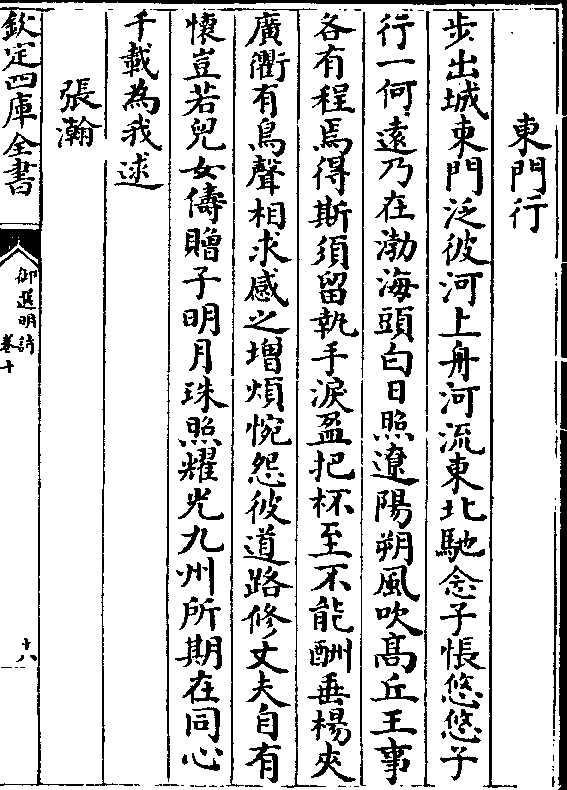 東門行
步出城東門泛彼河上舟河流東北馳念子悵悠悠子
行一何遠乃在渤海頭白日照遼陽朔風吹髙丘王事
各有程焉得斯須留執手淚盈把杯至不能酬垂楊夾
廣衢有鳥聲相求感之增煩惋怨彼道路修丈夫自有
懷豈若兒女儔贈子明月珠照耀光九州所期在同心
千載為我逑
張瀚
欽定四庫全書
御選明詩
卷十
十八